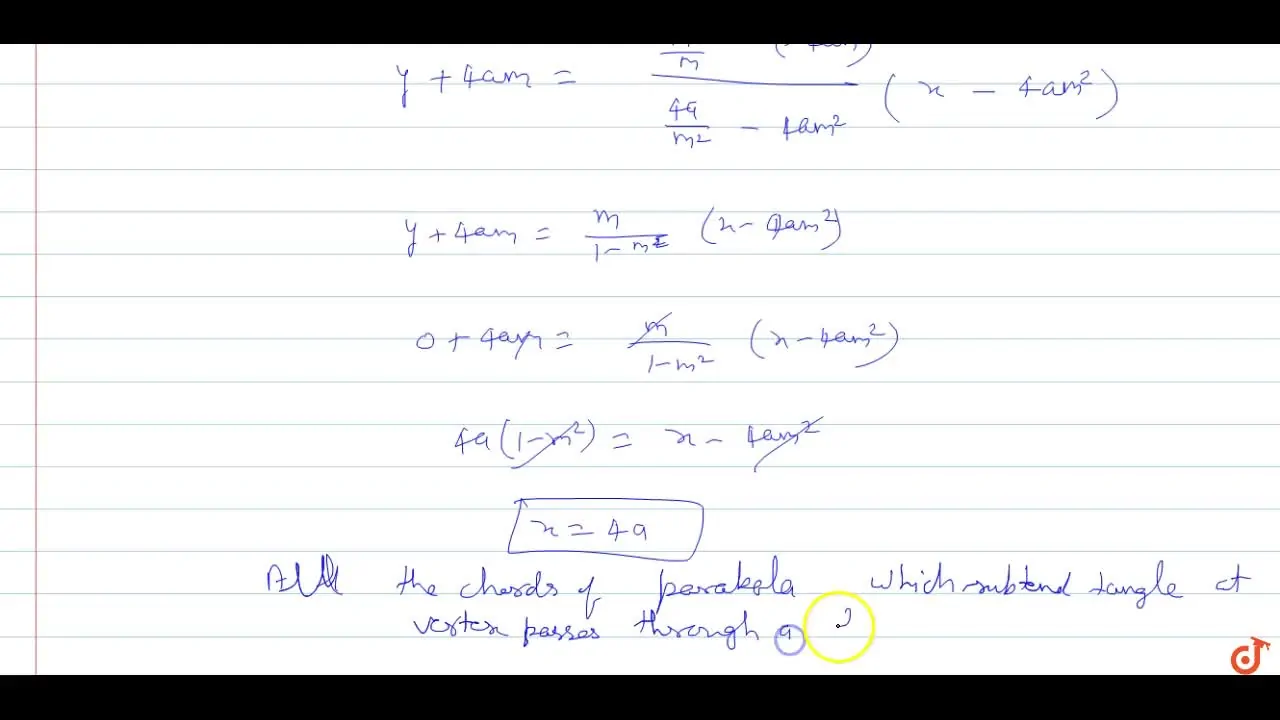 y + 4am = (x - 4am²)
4a/m² - 4am²
y + 4am = m/1-m² (x - 4am²)
0 + 4am = m/1-m² (x - 4am²)
4a(1-m²) = x - 4am²
x = 4a
All the chords of parabola which subtend tangle at
vertex passes through a